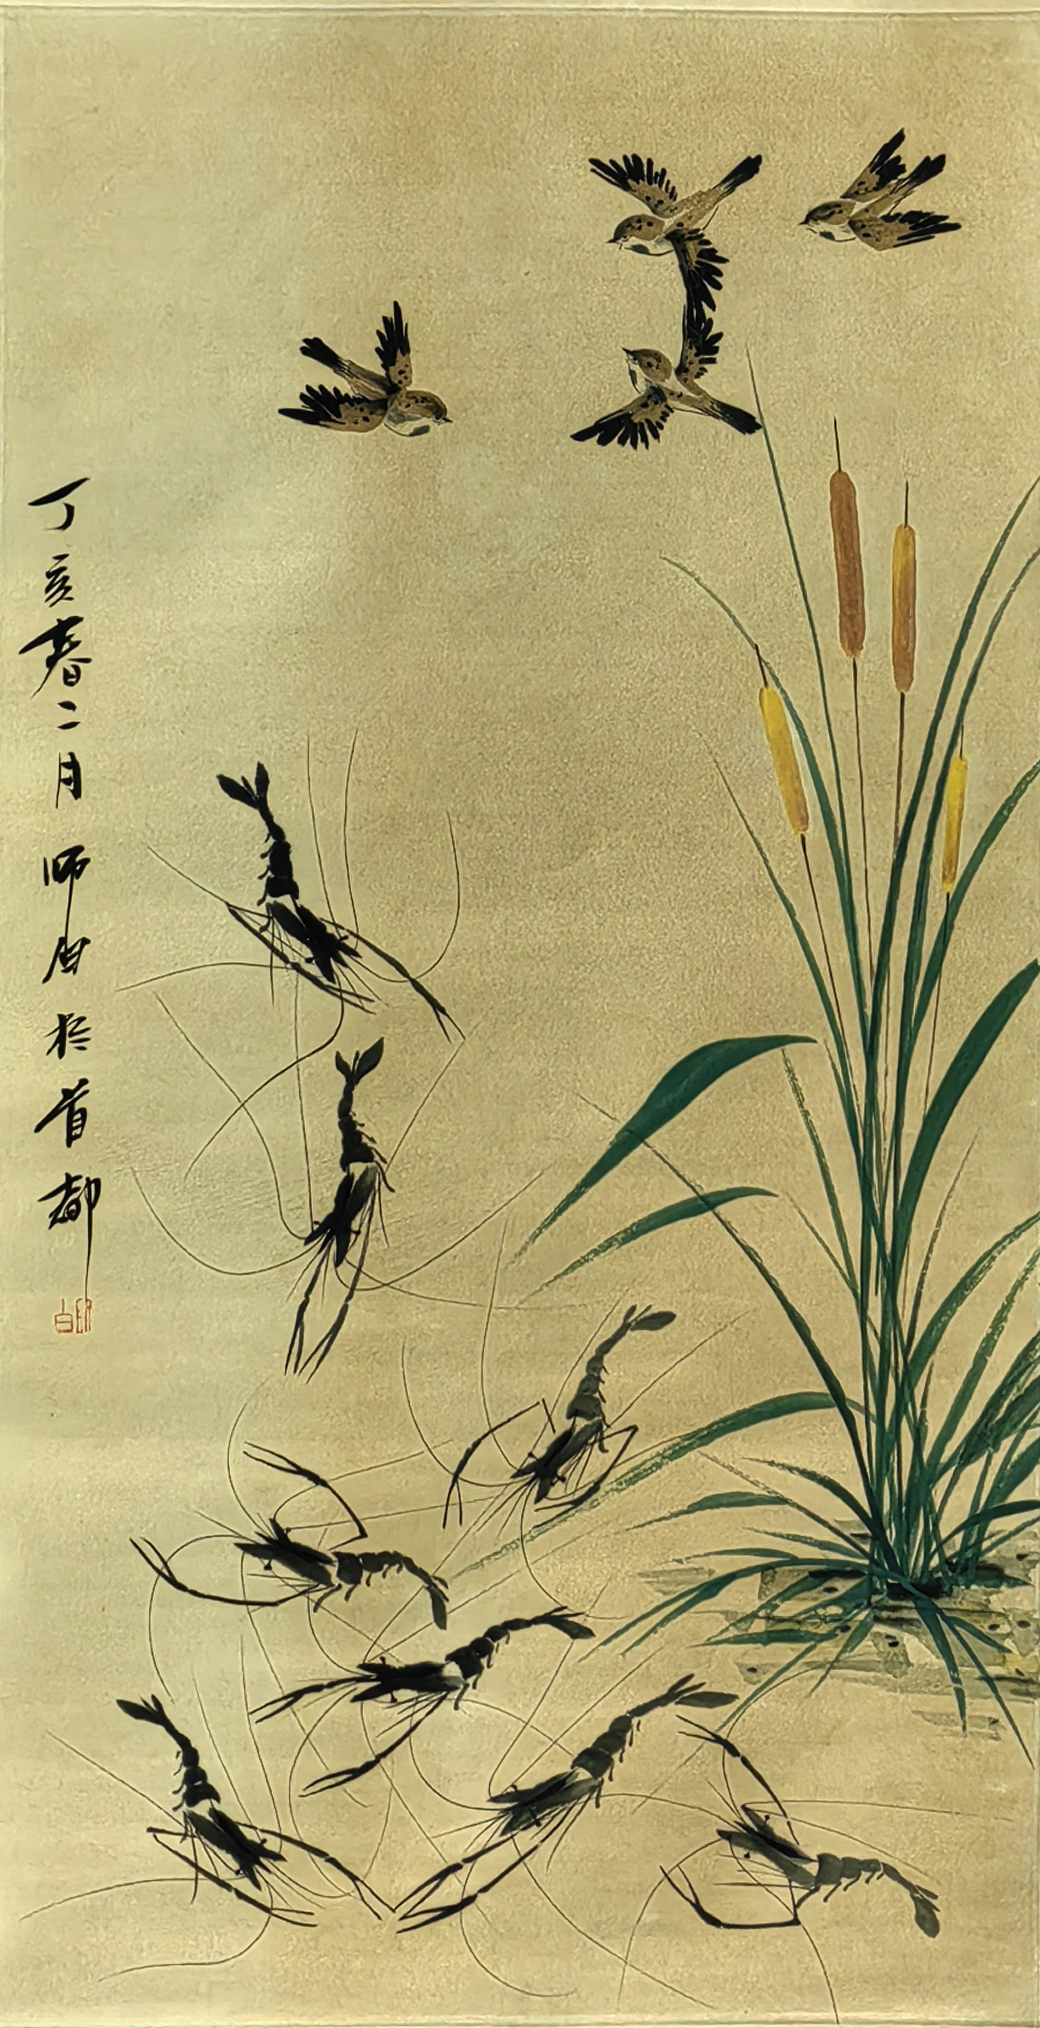 丁亥春二月师白於首都